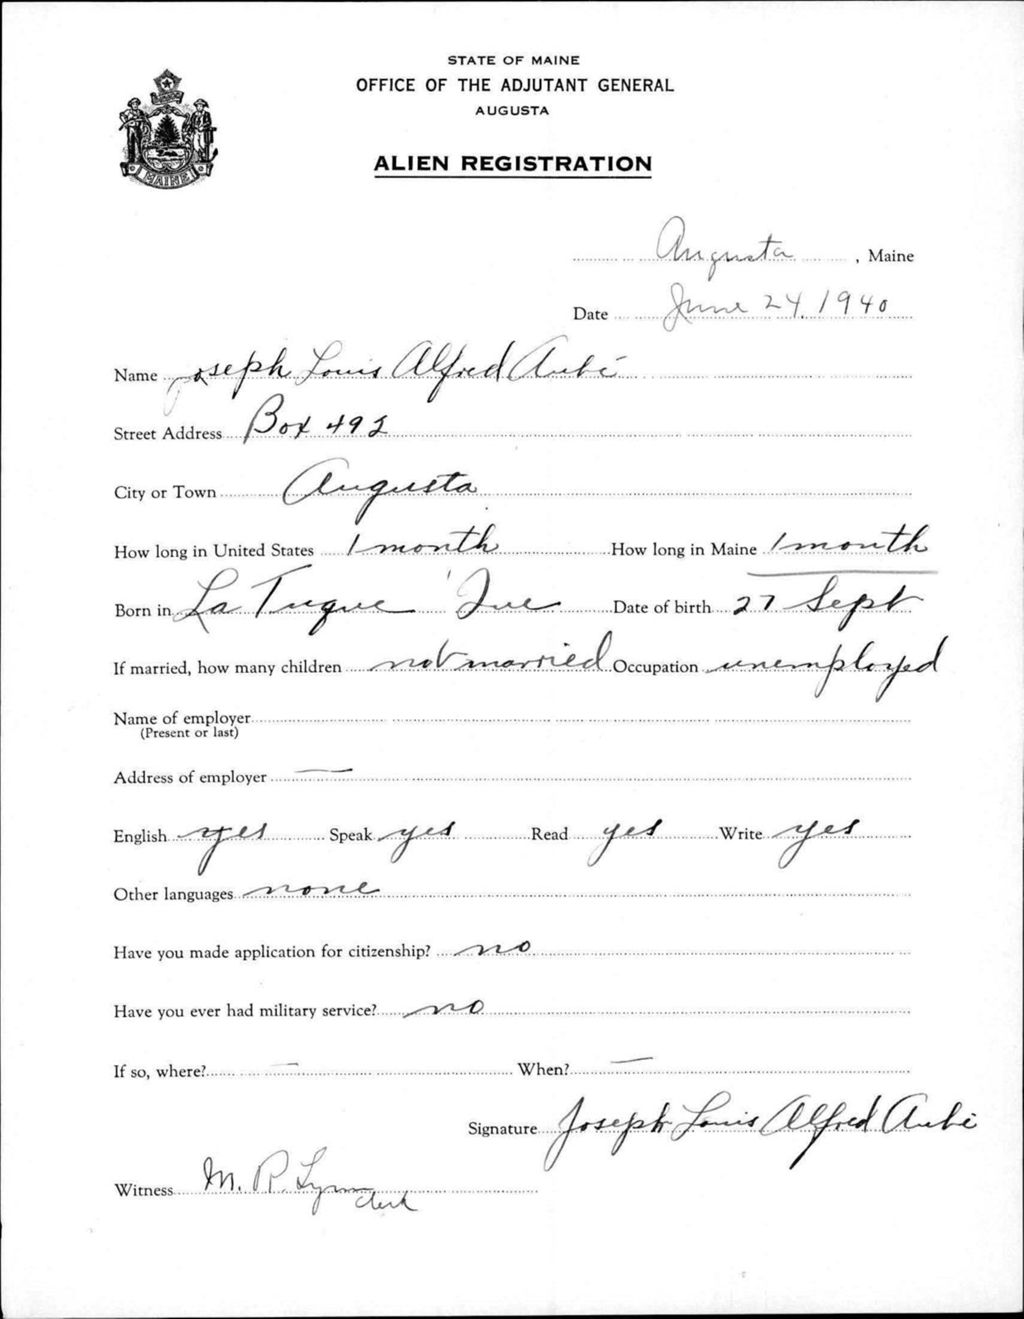 STATE OF MAINE
OFFICE OF THE ADJUTANT GENERAL
AUGUSTA
ALIEN REGISTRATION
MAINE
Augusta, Maine
Date June 24, 1940
Name Joseph Louis Alfred Aubé
Street Address Box 492
City or Town Augusta
How long in United States 1 month How long in Maine 1 month
Born in La Tuque Que Date of birth 27 Sept
If married, how many children not married Occupation unemployed
Name of employer
(Present or last)
Address of employer —
English yes Speak yes Read yes Write yes
Other languages none
Have you made application for citizenship? no
Have you ever had military service? no
If so, where? — When? —
Signature Joseph Louis Alfred Aubé
Witness M. R. clerk